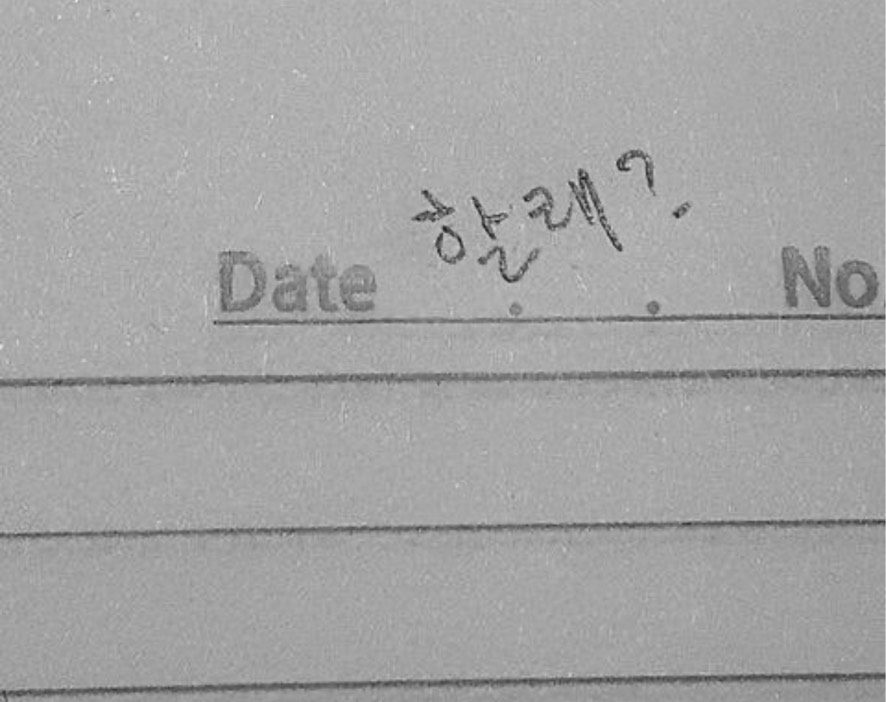 Date 할래? . . No